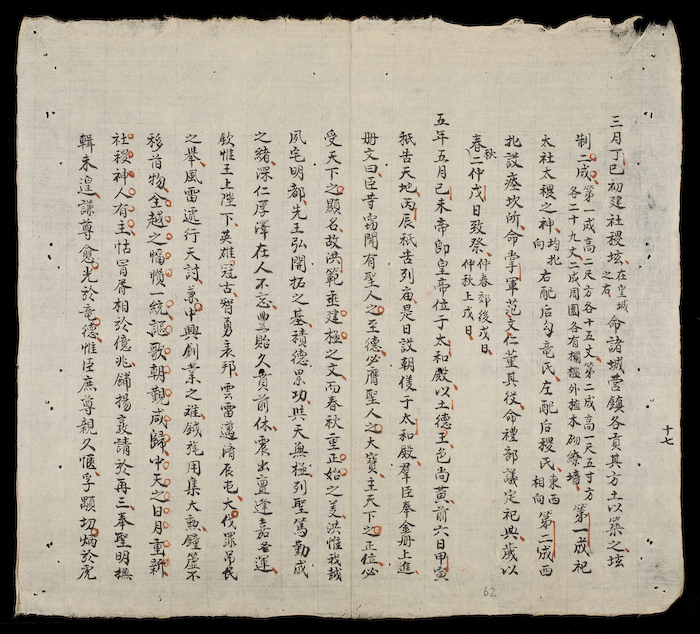 三月丁巳初建社稷壇在皇城之右命諸城营鎮各貢其方土以築之坛
制二成第一成高二尺方各十五丈第二成高一尺五寸方各二十九丈二成周圍各有欄檻外植本砌繚墻第一成祀
太社太稷之神均北向右配后勾竜氏左配后稷氏東西相向第二成西
北設瘞坎所命掌軍范文仁董其役命禮部議定祀典歲以
春秋二仲戊日致祭仲春郊後戊日仲秋上戊日
五年五月己未帝即皇帝位于太和殿以土德王色尚黃前六日甲寅
祇告天地丙辰祇告列庙是日設朝儀于太和殿羣臣奉金册上進
册文曰臣等窃聞有聖人之至德必膺聖人之大寶主天下之正位必
受天下之顯名故洪範垂建極之文而春秋重正始之義洪惟我越
夙宅明都先王弘開拓之基積德累功與天無極列聖篤勤成
之緒深仁厚澤在人不忘曡貽久負前休震出亶逢嘉會運
欽惟王上陛下英雄冠古智勇表邦雲雷遘濟辰屯大伐罪吊民
之舉風雷迅行天討兼中興創業之难旄用集大勳鐘簴不
移旧物全越之幅幀一統謳歌朝覲咸歸中天之日月重新
社稷神人有主怙冒胥相於億兆鋪揚爰請於再三奉聖明撫
輯未遑謙尊愈光於竜德惟臣庶尊親久愜孚顒切炳於虎
十七
62